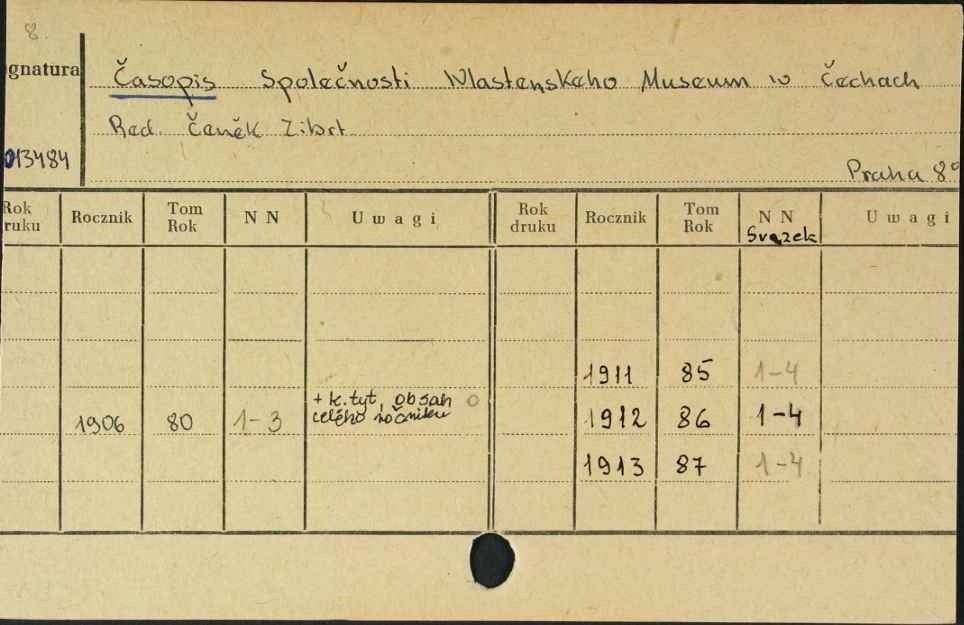 8.
gnatura
Časopis Společnosti Wlastenskeho Museum w Čechach
Red. Čeněk Zibrt
013484
Praha 8°
Rok ruku Rocznik Tom Rok N N Uwagi Rok druku Rocznik Tom Rok N N Svazek Uwagi
1911 85 1-4
1906 80 1-3 + k. tyt, obsah celého ročniku 1912 86 1-4
1913 87 1-4